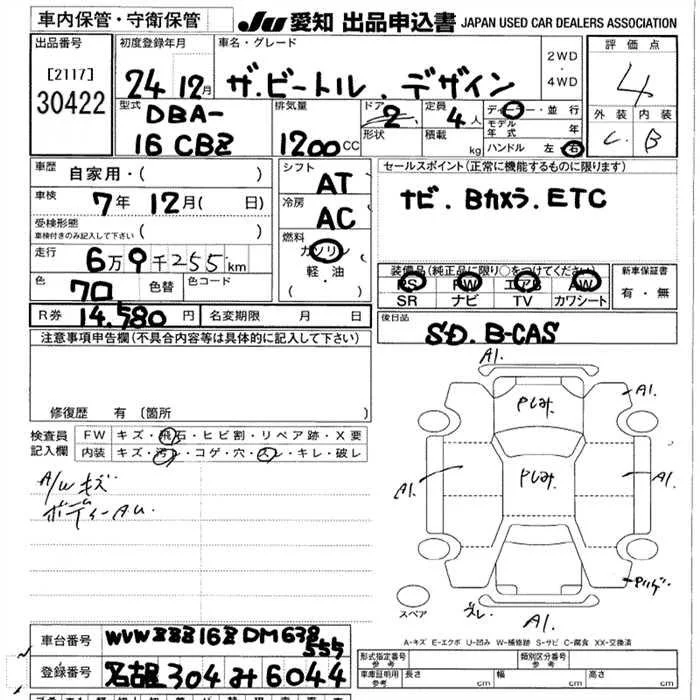 車内保管・守衛保管
JU 愛知 出品申込書 JAPAN USED CAR DEALERS ASSOCIATION
出品番号
[2117]
30422
初度登録年月
24年12月
車名・グレード
ザ.ビートル.デザイン
2WD
・
4WD
評価点
4
外装 内装
C. B
型式
DBA-
16CBZ
排気量
1200CC
ドア
2
形状
定員
4人
積載
kg
ディーラー・並行
モデル年式 年
ハンドル 左 右
車歴
自家用・( )
車検
7年12月( 日)
受検形態
車検付きのみ記入して下さい ( )
走行
6万9千255km
色
黒
色替
色コード
R券
14,580円
名変期限 月 日
シフト
AT
冷房
AC
燃料
ガソリン
軽・油
( ・ )
セールスポイント(正常に機能するものに限ります)
ナビ.Bカメラ.ETC
装備品(純正品に限り○をつけてください)
PS PW エアB AW
SR ナビ TV カワシート
新車保証書
有・無
後日品
SD. B-CAS
注意事項申告欄(不具合内容等は具体的に記入して下さい)
修復歴 有 〔箇所
検査員
記入欄
FW キズ・飛石・ヒビ割・リペア跡・X要
内装 キズ・汚レ・コゲ・穴・スレ・キレ・破レ
A/W キズ
ボディーAU
A1.
A1.
Pしみ.
Pしみ.
A1.
A1.
スレ.
A1.
スペア
A-キズ E-エクボ U-凹み W-補修跡 S-サビ C-腐食 XX-交換済
車台番号
WVWZZZ16ZDM638
557
登録番号
名古屋 304 み 6044
形式指定番号
参考
類別区分番号
参考
車庫証明用
参考
長さ cm 幅 cm 高さ cm